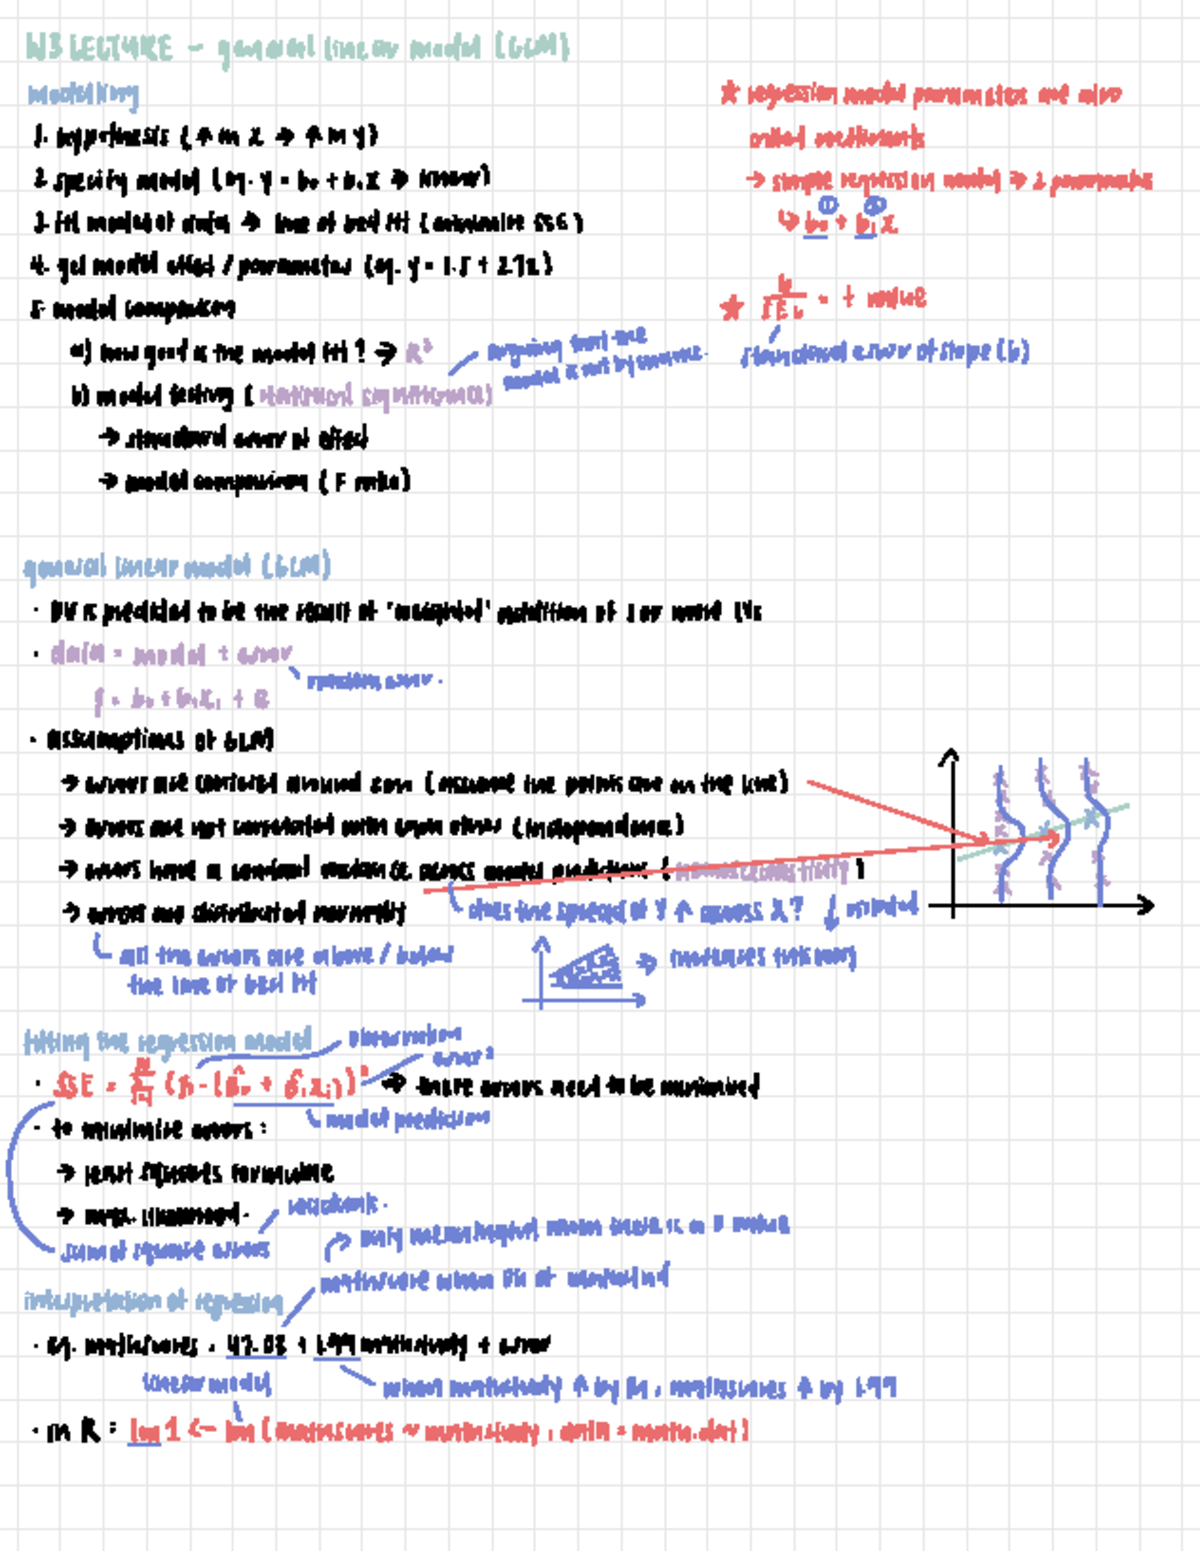 W3 LECTURE - general linear model (GLM)
modelling
1. hypothesis (↑ in x → ↑ in y)
2. specify model (eg. y = b₀ + b₁x → linear)
3. fit model of data → line of best fit (minimise SSE)
4. get model effect / parameters (eg. y = 1.5 + 2.7x)
5. model comparison
a) how good is the model fit? → R²
b) model testing (statistical significance)
arguing that the
model is not by chance.
→ standard error of effect
→ model comparison (F ratio)
★ regression model parameters are also
called coefficients
→ simple regression model → 2 parameters
① ②
↳ b₀ + b₁x
★ b / SE b = t value
standard error of slope (b)
general linear model (GLM)
· DV is predicted to be the result of 'weighted' addition of 1 or more IVs
· data = model + error
random error.
y = b₀ + b₁x₁ + e
· assumptions of GLM
→ errors are centered around zero (assume the points are on the line)
→ errors are not correlated with each other (independence)
→ errors have a constant variance across model predictions (homoscedasticity)
→ errors are distributed normally
does the spread of Y ↑ across X? ↓ violated
all the errors are above / below
the line of best fit
→
fitting the regression model
observation
error²
· SSE = (yᵢ - (b̂₀ + b̂₁xᵢ))² → where errors need to be minimised
model prediction
· to minimise errors:
→ least squares formulae
→ max. likelihood.
residuals.
sum of square errors
only meaningful when there is a 0 value
interpretation of regression
· eg. mathscores = 47.03 + 1.99 mathstudy + error
linear model
when mathstudy ↑ by 1, mathscores ↑ by 1.99
· in R: lm1 <- lm(mathscores ~ mathstudy, data = math.dat)